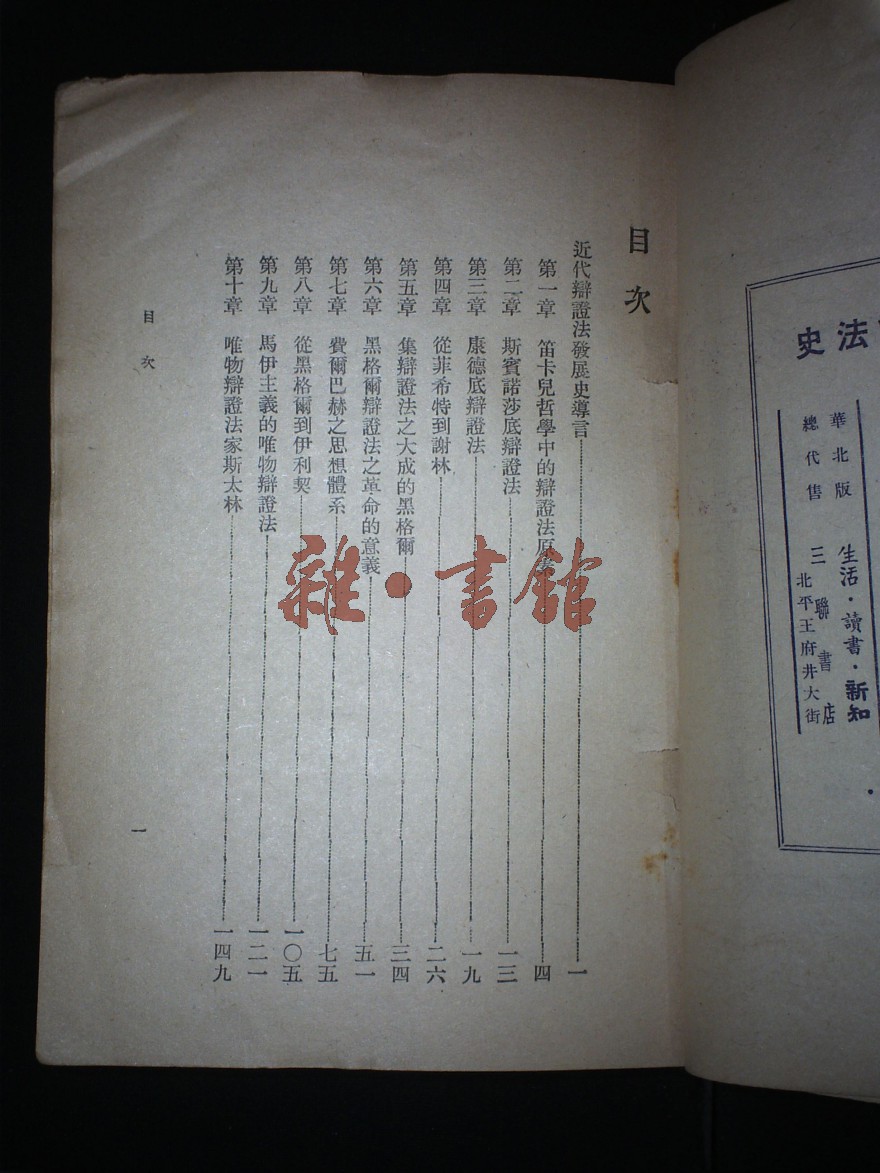 法史
華北版
總代售
生活·讀書·新知
三聯書店
北平王府井大街
目次
近代辯證法發展史導言 一
第一章 笛卡兒哲學中的辯證法原素 四
第二章 斯賓諾莎底辯證法 一三
第三章 康德底辯證法 一九
第四章 從菲希特到謝林 二六
第五章 集辯證法之大成的黑格爾 三四
第六章 黑格爾辯證法之革命的意義 五一
第七章 費爾巴赫之思想體系 七五
第八章 從黑格爾到伊利契 一〇五
第九章 馬伊主義的唯物辯證法 一二一
第十章 唯物辯證法家斯太林 一四九
目次
一
雜·書館